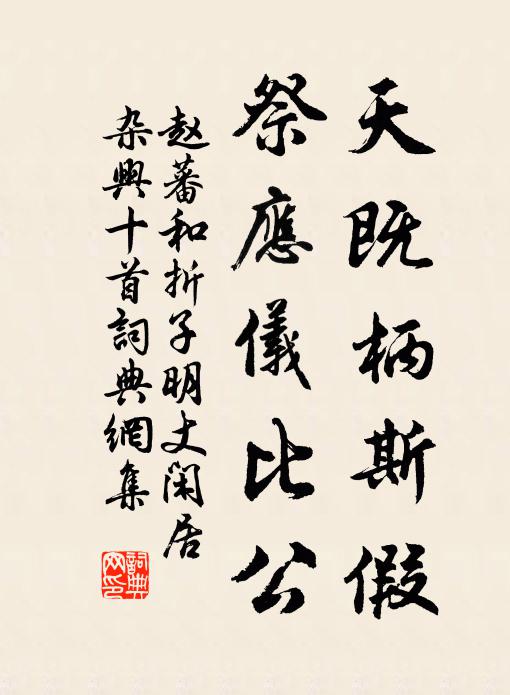 天既柄斯假
祭應儀比公
赵蕃和折子明丈闲居
杂興十首詞典網集
詞典網印